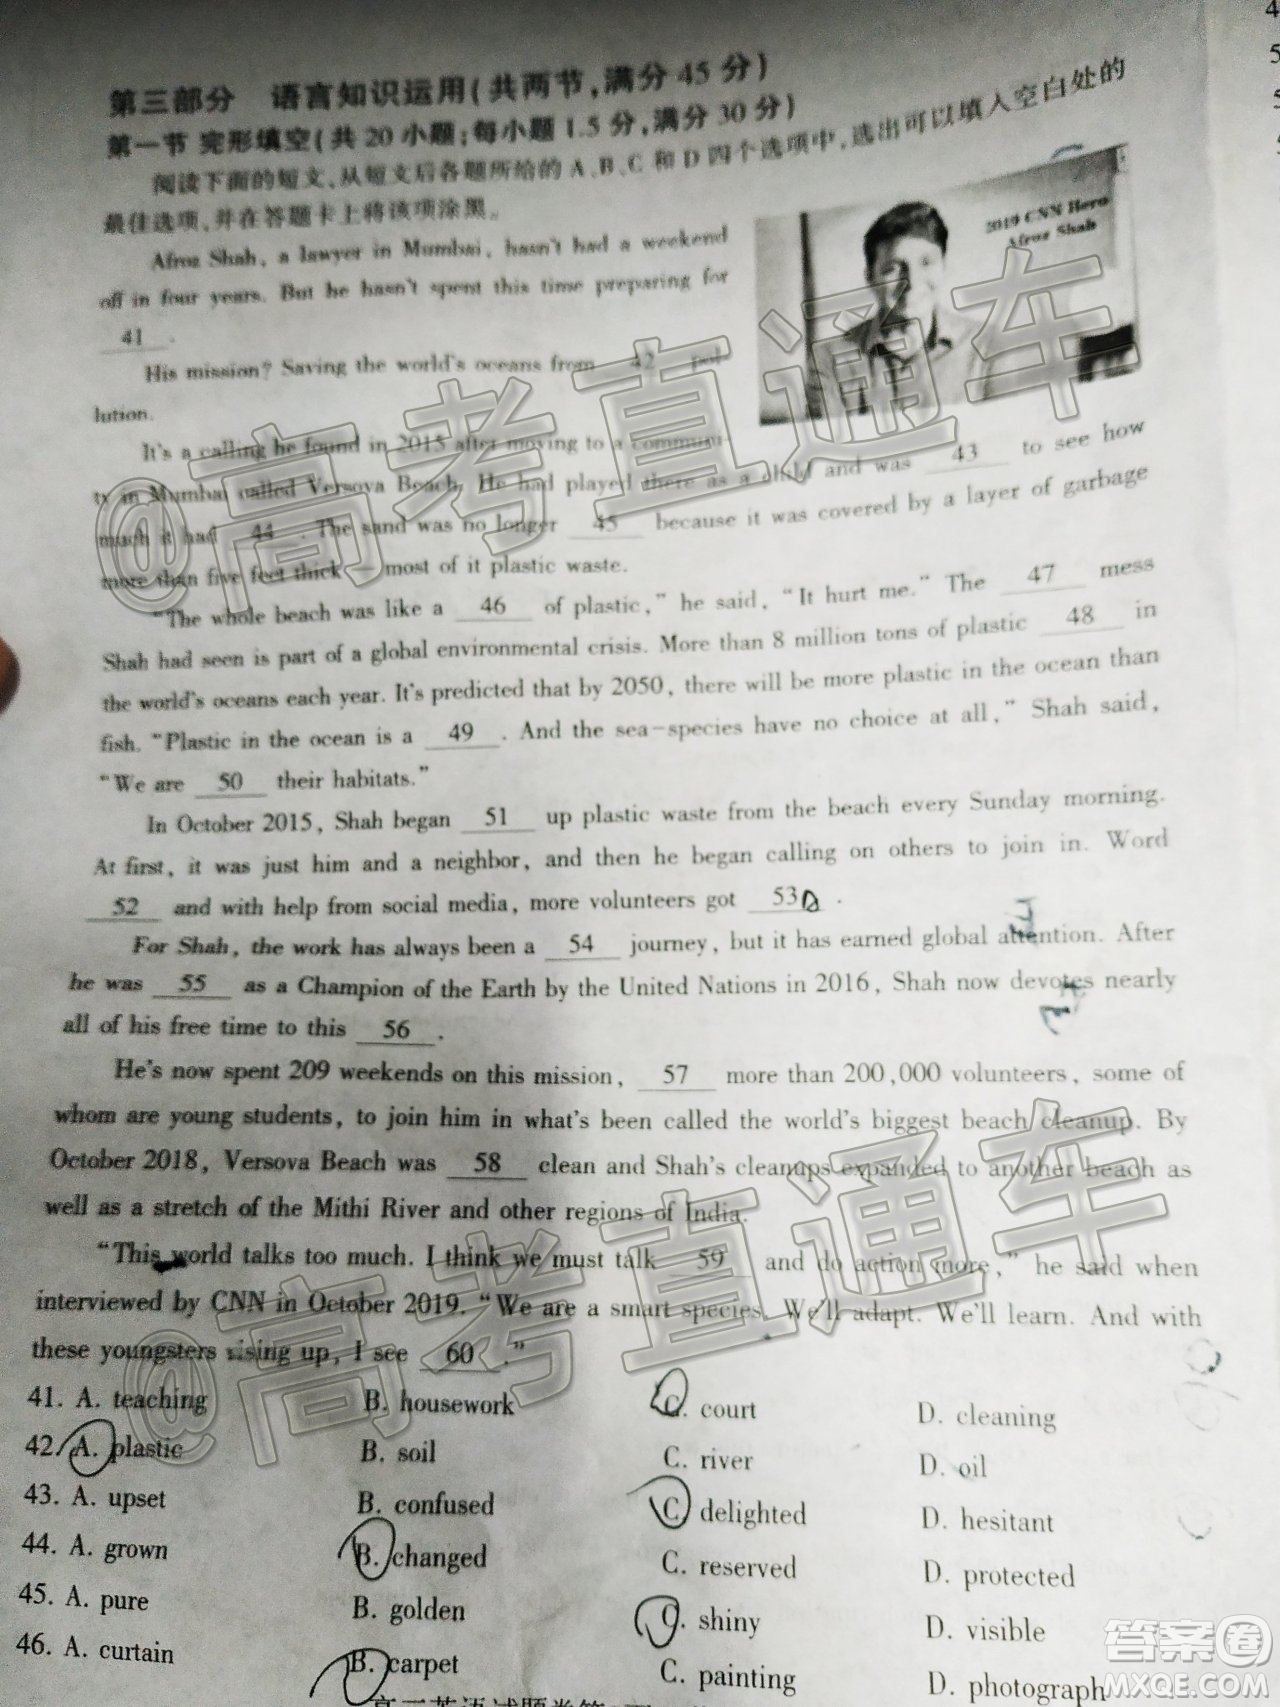 第三部分 语言知识运用(共两节,满分45分)
第一节 完形填空(共20小题;每小题1.5分,满分30分)
阅读下面的短文,从短文后各题所给的A、B、C和D四个选项中,选出可以填入空白处的
最佳选项,并在答题卡上将该项涂黑。
2019 CNN Hero
Afroz Shah
Afroz Shah, a lawyer in Mumbai, hasn't had a weekend
off in four years. But he hasn't spent this time preparing for
41 .
His mission? Saving the world's oceans from 42 pol-
lution.
It's a calling he found in 2015 after moving to a communi-
ty in Mumbai called Versova Beach. He had played there as a child and was 43 to see how
much it had 44 . The sand was no longer 45 because it was covered by a layer of garbage
more than five feet thick — most of it plastic waste.
"The whole beach was like a 46 of plastic," he said, "It hurt me." The 47 mess
Shah had seen is part of a global environmental crisis. More than 8 million tons of plastic 48 in
the world's oceans each year. It's predicted that by 2050, there will be more plastic in the ocean than
fish. "Plastic in the ocean is a 49 . And the sea-species have no choice at all," Shah said,
"We are 50 their habitats."
In October 2015, Shah began 51 up plastic waste from the beach every Sunday morning.
At first, it was just him and a neighbor, and then he began calling on others to join in. Word
52 and with help from social media, more volunteers got 53 .
For Shah, the work has always been a 54 journey, but it has earned global attention. After
he was 55 as a Champion of the Earth by the United Nations in 2016, Shah now devotes nearly
all of his free time to this 56 .
He's now spent 209 weekends on this mission, 57 more than 200,000 volunteers, some of
whom are young students, to join him in what's been called the world's biggest beach cleanup. By
October 2018, Versova Beach was 58 clean and Shah's cleanups expanded to another beach as
well as a stretch of the Mithi River and other regions of India.
"This world talks too much. I think we must talk 59 and do action more," he said when
interviewed by CNN in October 2019. "We are a smart species. We'll adapt. We'll learn. And with
these youngsters rising up, I see 60 ."
41. A. teaching B. housework C. court D. cleaning
42. A. plastic B. soil C. river D. oil
43. A. upset B. confused C. delighted D. hesitant
44. A. grown B. changed C. reserved D. protected
45. A. pure B. golden C. shiny D. visible
46. A. curtain B. carpet C. painting D. photograph
@高考直通车
@高考直通车
答案圈
MXQE.COM